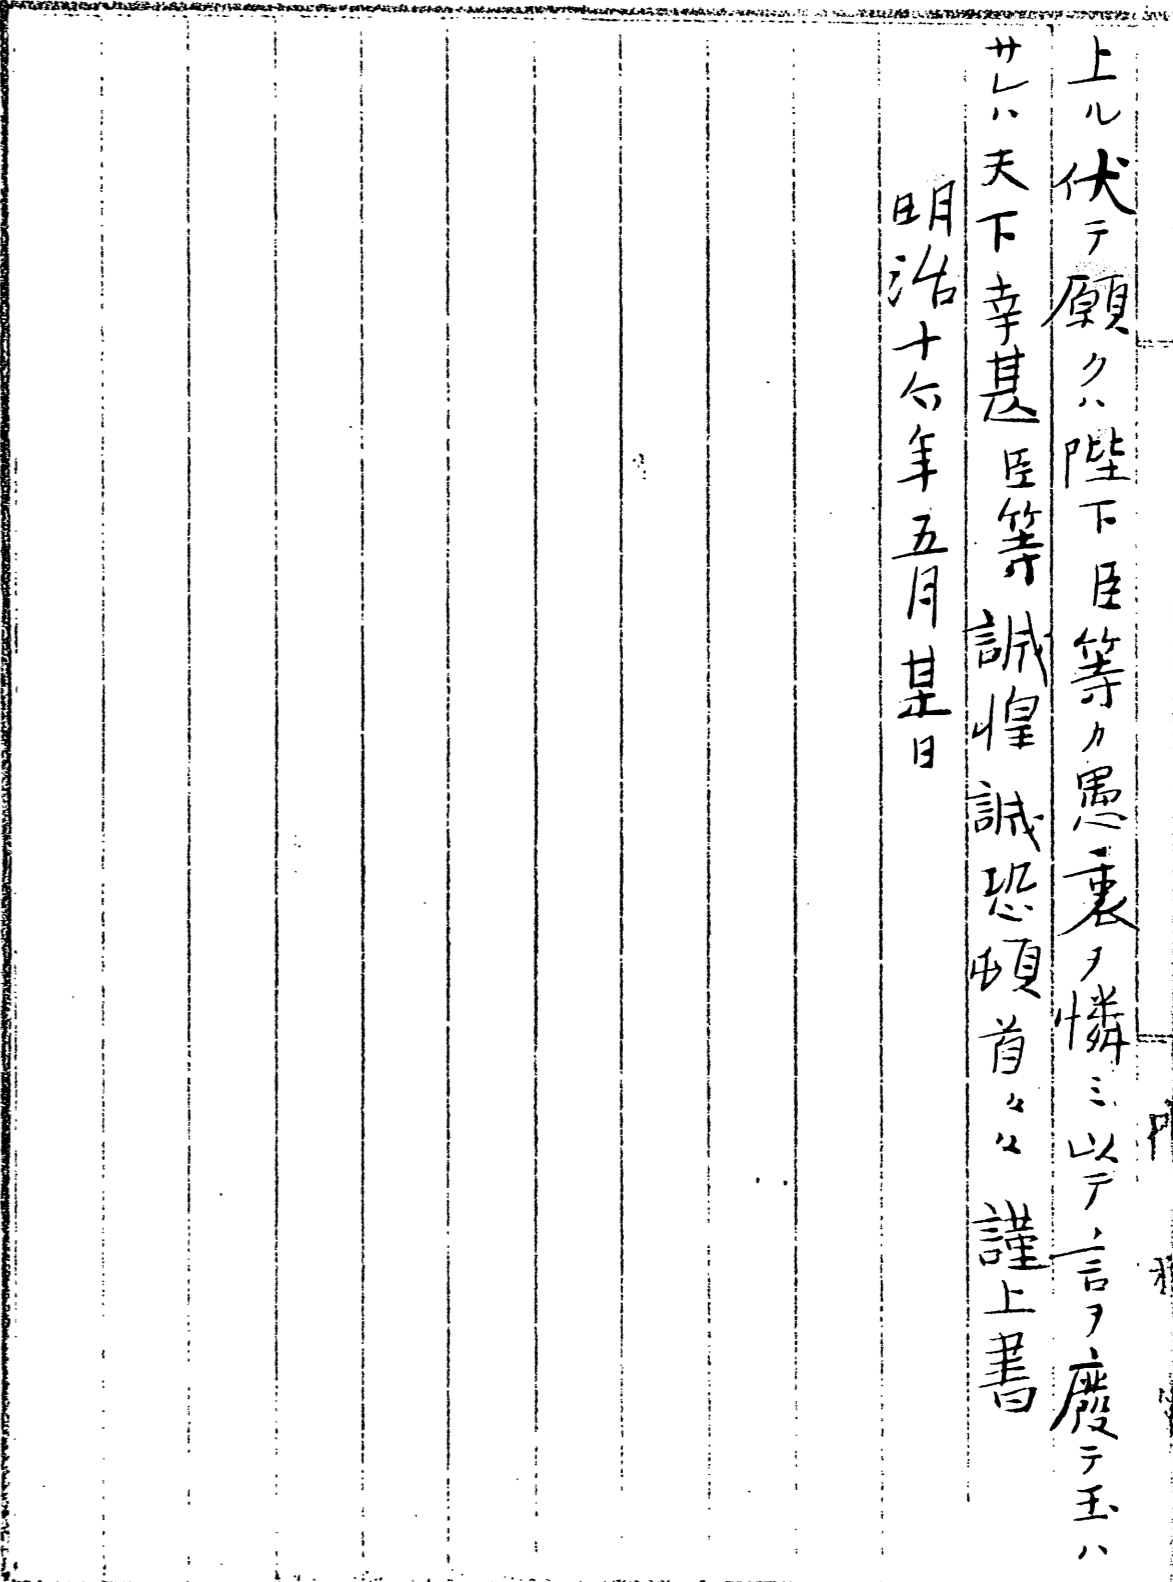 上ル伏テ願クハ陛下臣等カ愚衷ヲ憐ミ以テ言ヲ廃テ玉ハ
サレハ天下幸甚臣等誠惶誠恐頓首々々謹上書
明治十六年五月某日